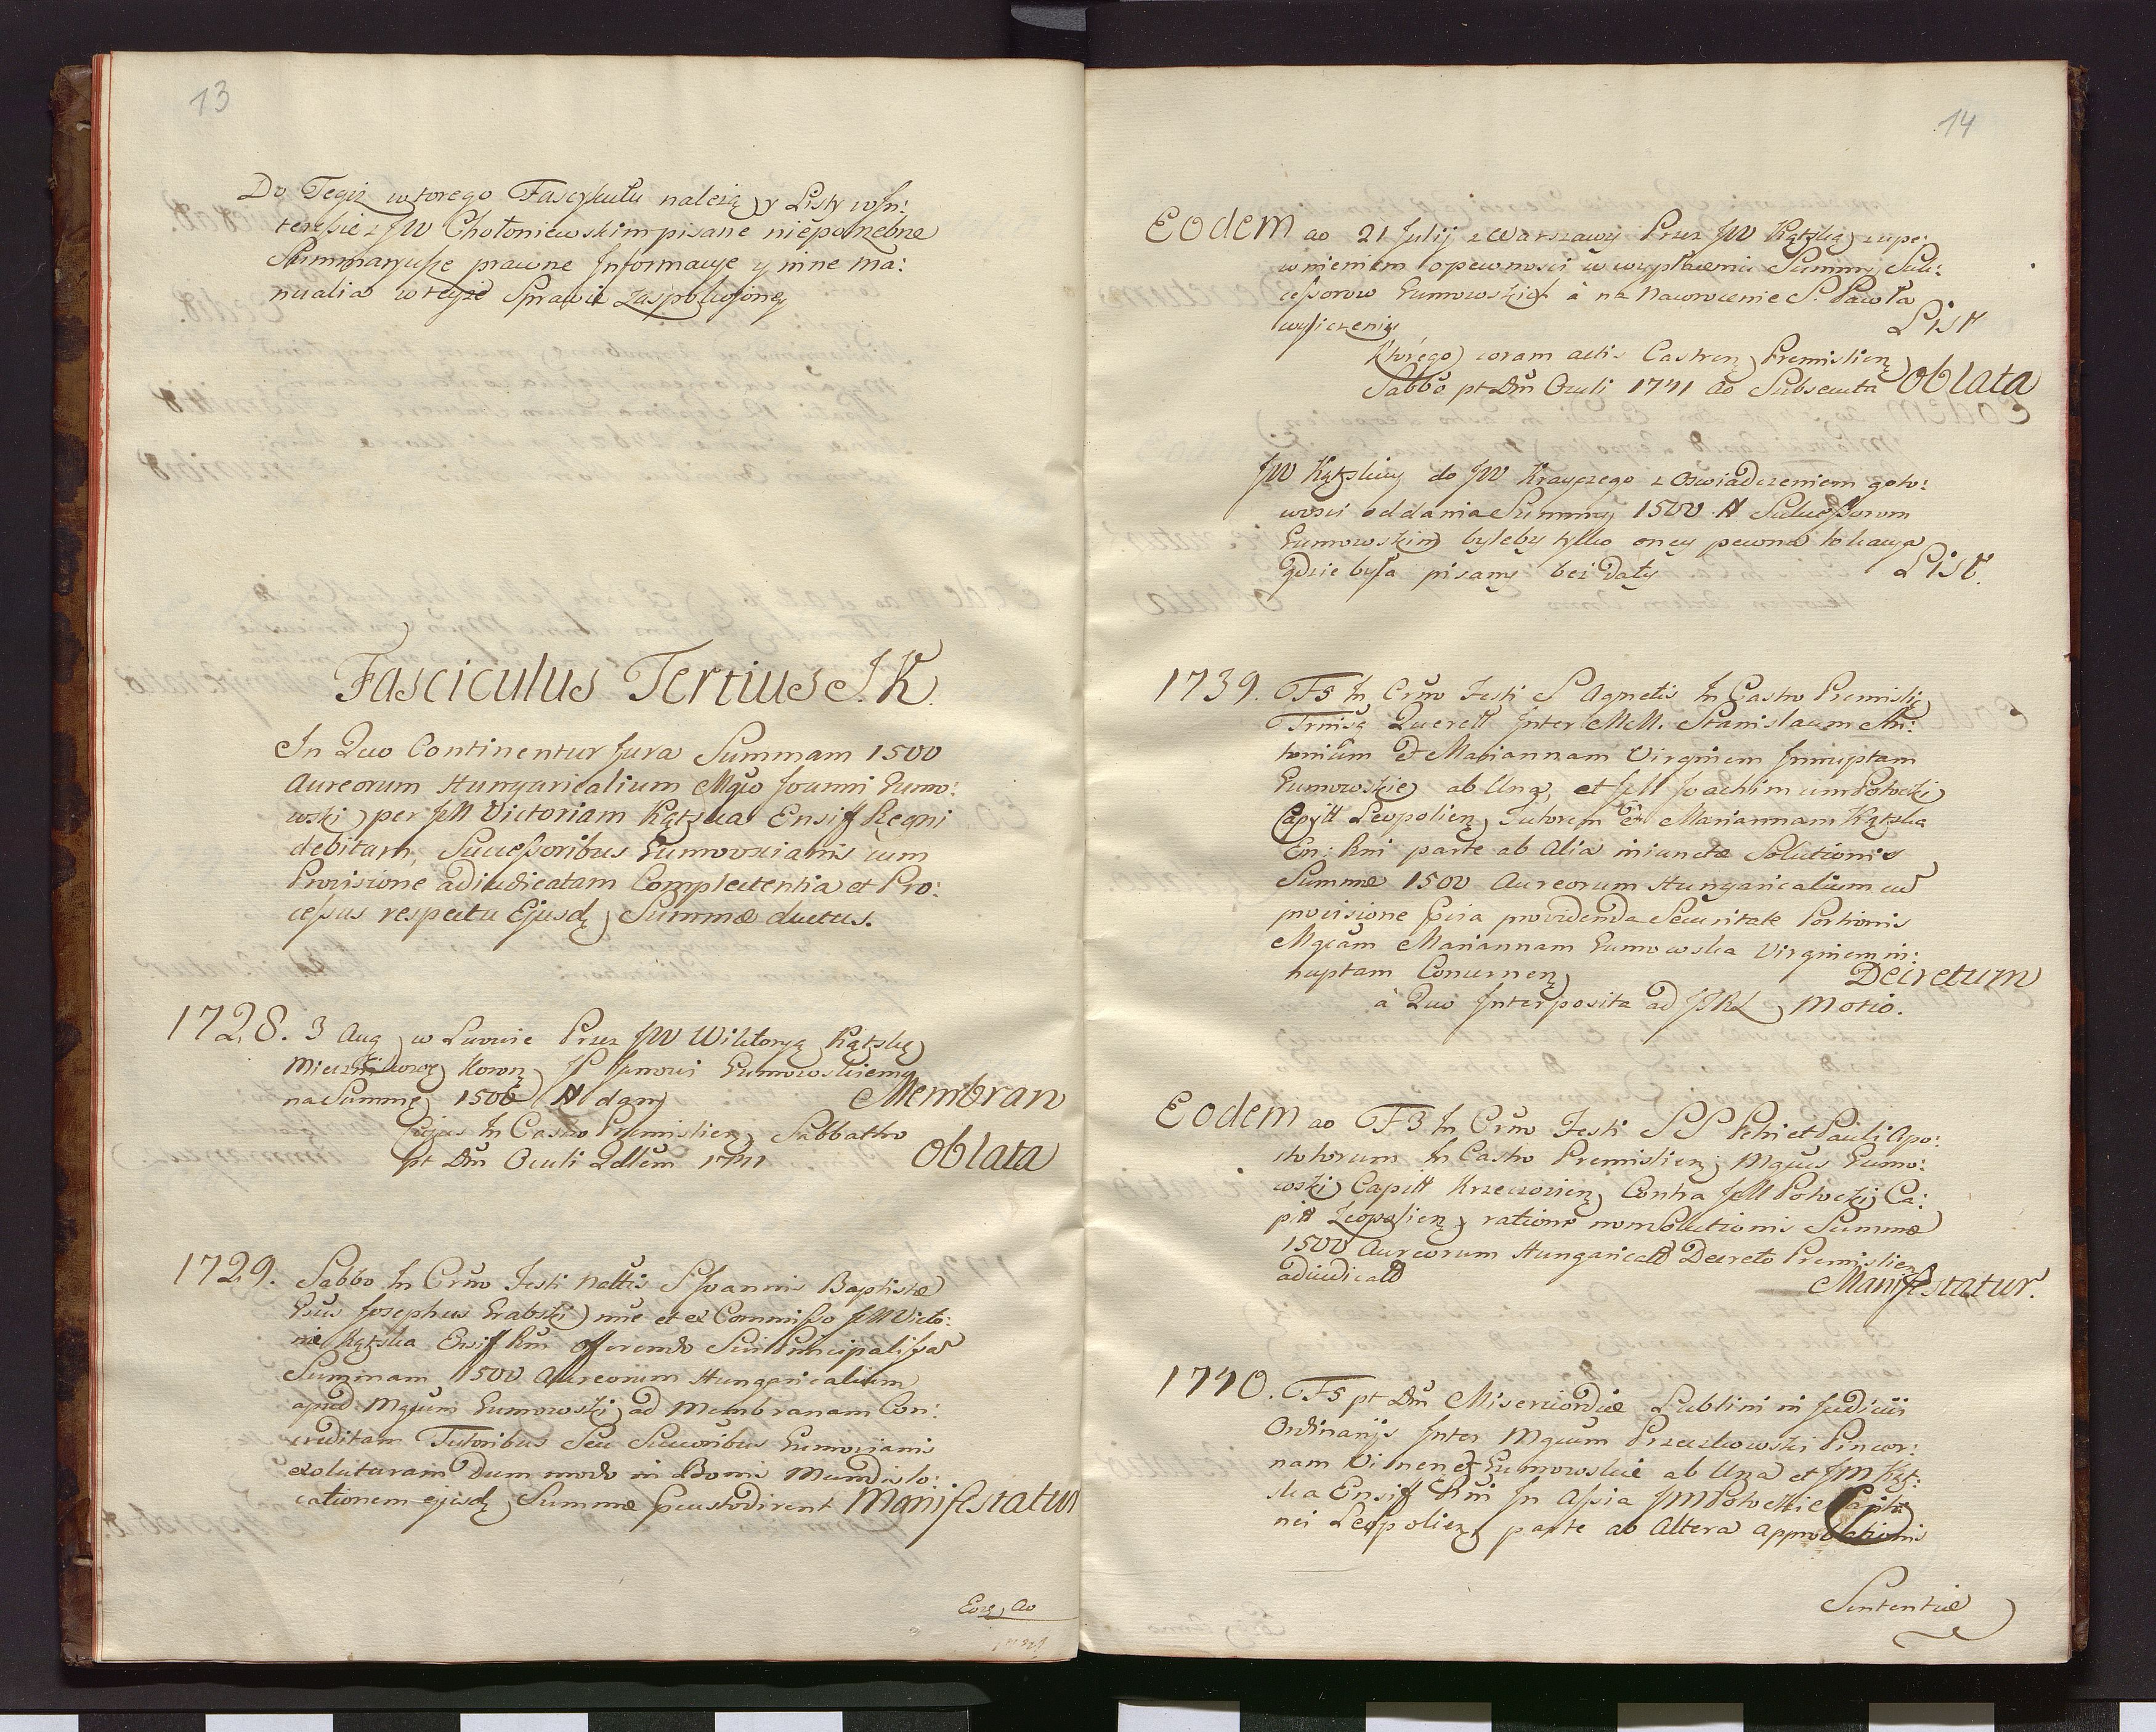 13
Do Tegoż wtorego Fascykułu należą y Listy w In:
teresie z JW Chołoniewskim pisane niepotrzebne
Summaryusze prawne Informacye y inne ma:
nualia w teyże Sprawie zaspokoioney
Fasciculus Tertius J. K.
In Quo Continentur Jura Summam 1500
Aureorum Hungaricalium Mgco Joanni Gumo:
wski per JM Victoriam Kątska Ensiff Regni
debitam, Successoribus Gumovscianis cum
Provisione adiudicatam Complectentia et Pro:
cessus respectu Ejusdę Summæ ductus.
1728. 3 Aug w Lwowie Przez JW Wiktoryą Kątską
Miecznikową Koroną JP Janowi Gumowskiemu
na Summę 1500 # dany Membran
Cujus In Castro Premislień Sabbatho
pt Dm Oculi 1741 Oblata
1729. Sabbo In Crno Festi Nattis S Joannis Baptistæ
Gsus Josephus Grabski nne et ex Commisso JM Victo:
riæ Kątska Ensiff Rni offerendo Principalis
Summam 1500 Aureorum Hungaricalium
apud Mgcum Gumowski ad Membranam Con:
creditam Tutoribus Seu Succoribus Gumovianis
exoluturam dum modo in Bonis Mundis lo:
cationem ejusdę Summæ Manifestatur
Eoดู Ao
14
Eodem ao 21 Julij z Warszawy Przez JW Kątską z upe:
wnieniem o pewnosci w wypłaceniu Summy Suk:
cessorow Gumowskich á na Nawrocenie S. Pawła
wyliczeniu List
Ktorego coram actis Castren Premislien
Sabbo pt Dm Oculi 1741 ao Subsecuta Oblata
JW Kątskiey do JW Krayczego z oswiadczeniem goto:
wosci oddania Summy 1500 # Sukcessorom
Gumowskim byleby tylko oney pewna lokacya
gdzie była pisany bez Daty List.
1739. F5 In Crno Festi S Agnetis In Castro Premisli
Inter MM. Stanislaum An:
tonium & Mariannam Virginem Innuptam
Gumowskie ab Una, et JM Joachimum Potocki
Capitt Leopolien, Tutorem et Mariannam Kątska
En: Rni parte ab Alia iniunctæ Solutionis
Summæ 1500 Aureorum Hungaricalium cu
provisione providenda Securitate Portionis
Mgcam Mariannam Gumowska Virginem in:
nuptam Concernen Decretum
à Quo Interposita ad Motio.
Eodem ao F3 In Crno Festi SS Petri et Pauli Apo:
stolorum In Castro Premislien; Mgcus Gumo:
wski Capitt Krzeczovien Contra JM Potocki Ca:
pitt Leopolien, ratione non Solutionis Summæ
1500 Aureorum Hungarical Decreto Premislien
adiudicatæ Manifestatur.
1740. F5 pt Dm Misericordiæ Lublini in Judiciis
Ordinarijs Inter Mgcum Przeczkowski Pincer:
nam & Gumowskie ab Una et JM Kąt:
ska Ensiff Rni In Assia JM Potockie Capita
nei Leopolien, parte ab Altera approbationis
Sententiæ